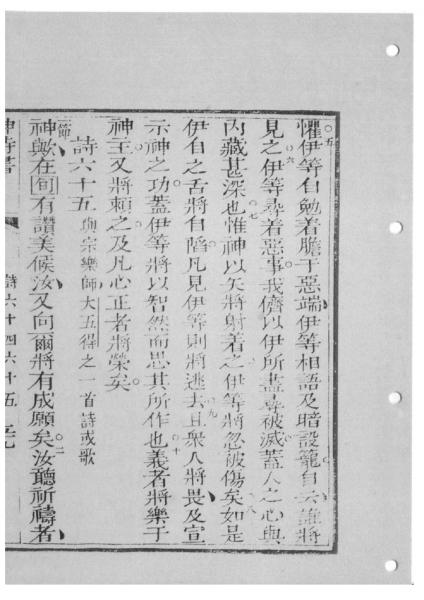 懼五伊等自勉着膽于惡端伊等相語及暗設籠自云誰將
見之六伊等尋着惡事我儕以伊所盡尋被滅蓋人之心與
內藏甚深也七惟神以矢將射着之伊等將忽被傷矣八如是
伊自之舌將自陷凡見伊等則將逃去九且衆人將畏及宣
示神之功蓋伊等將以智然而思其所作也十義者將樂于
神主又將賴之及凡心正者將榮矣
詩六十五 與宗樂師大五得之一首詩或歌
一節神歟在旬有讚美候汝又向爾將有成願矣二汝聽祈禱者
神詩書 詩六十四六十五